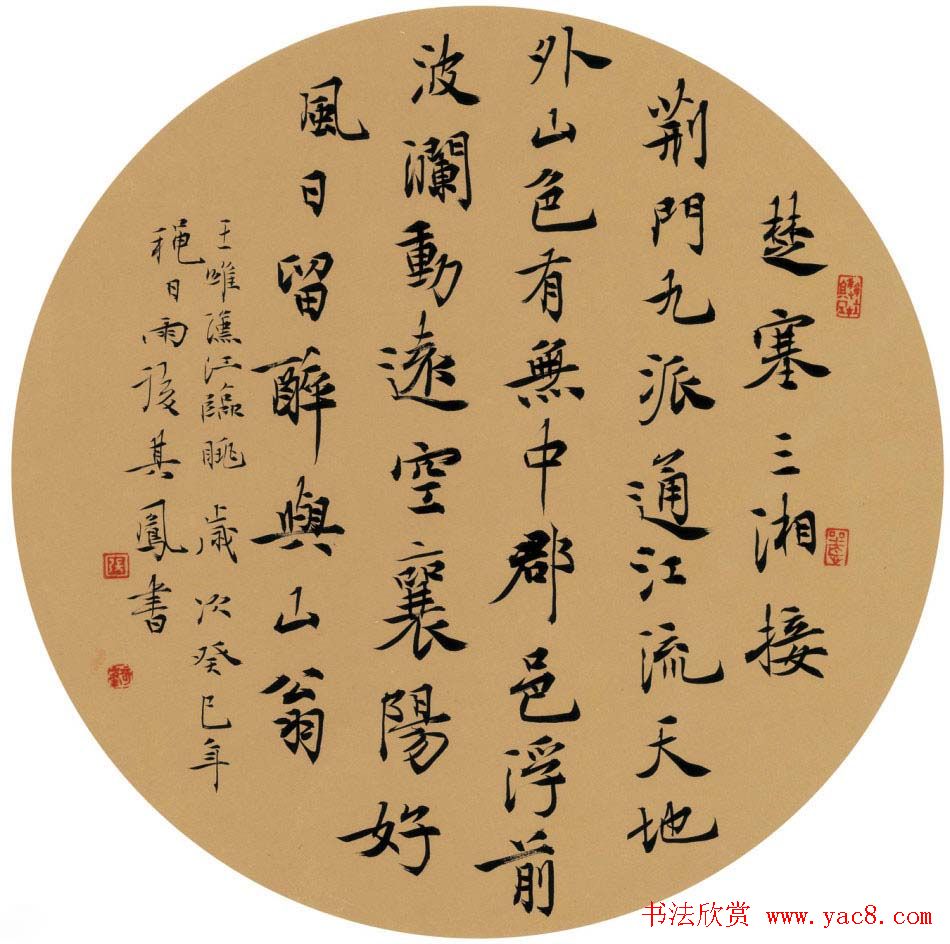 楚塞三湘接
荆門九派通江流天地
外山色有無中郡邑浮前
波瀾動遠空襄陽好
風日留醉與山翁
王唯漢江臨眺 歲次癸巳年
穐日雨後其鳳書
书法欣赏 www.yac8.com